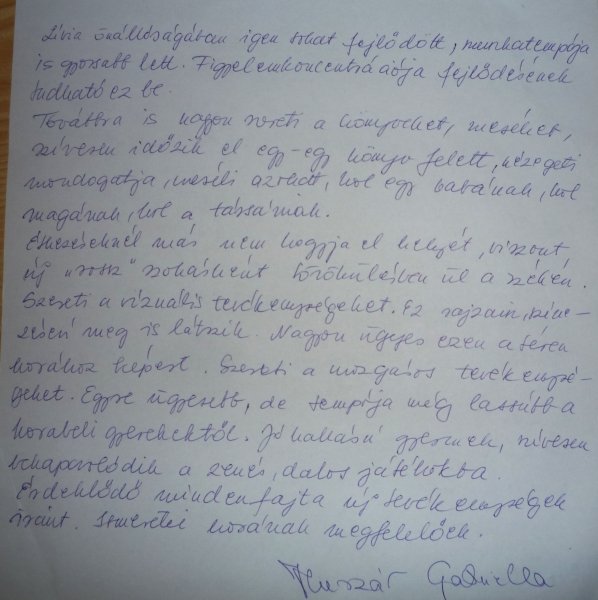 Lívia önállóságában igen sokat fejlődött, munkatempója
is gyorsabb lett. Figyelemkoncentrációja fejlődésének
tudható ez be.
Továbbra is nagyon szereti a könyveket, meséket,
szívesen időzik el egy-egy könyv felett, nézegeti
mondogatja, meséli azokat, hol egy babának, hol
magának, hol a társának.
Étkezéseknél már nem hagyja el helyét, viszont
új "rossz" szokásként törökülésben ül a székén.
Szereti a vizuális tevékenységeket. Ez rajzain, színe-
zésein meg is látszik. Nagyon ügyes ezen a téren
korához képest. Szereti a mozgásos tevékenysé-
geket. Egyre ügyesebb, de tempója még lassúbb a
korabeli gyerekektől. Jó hallású gyermek, szívesen
bekapcsolódik a zenés, dalos játékokba.
Érdeklődő mindenfajta új tevékenységek
iránt. Ismeretei korának megfelelőek.
Huszár Gabriella